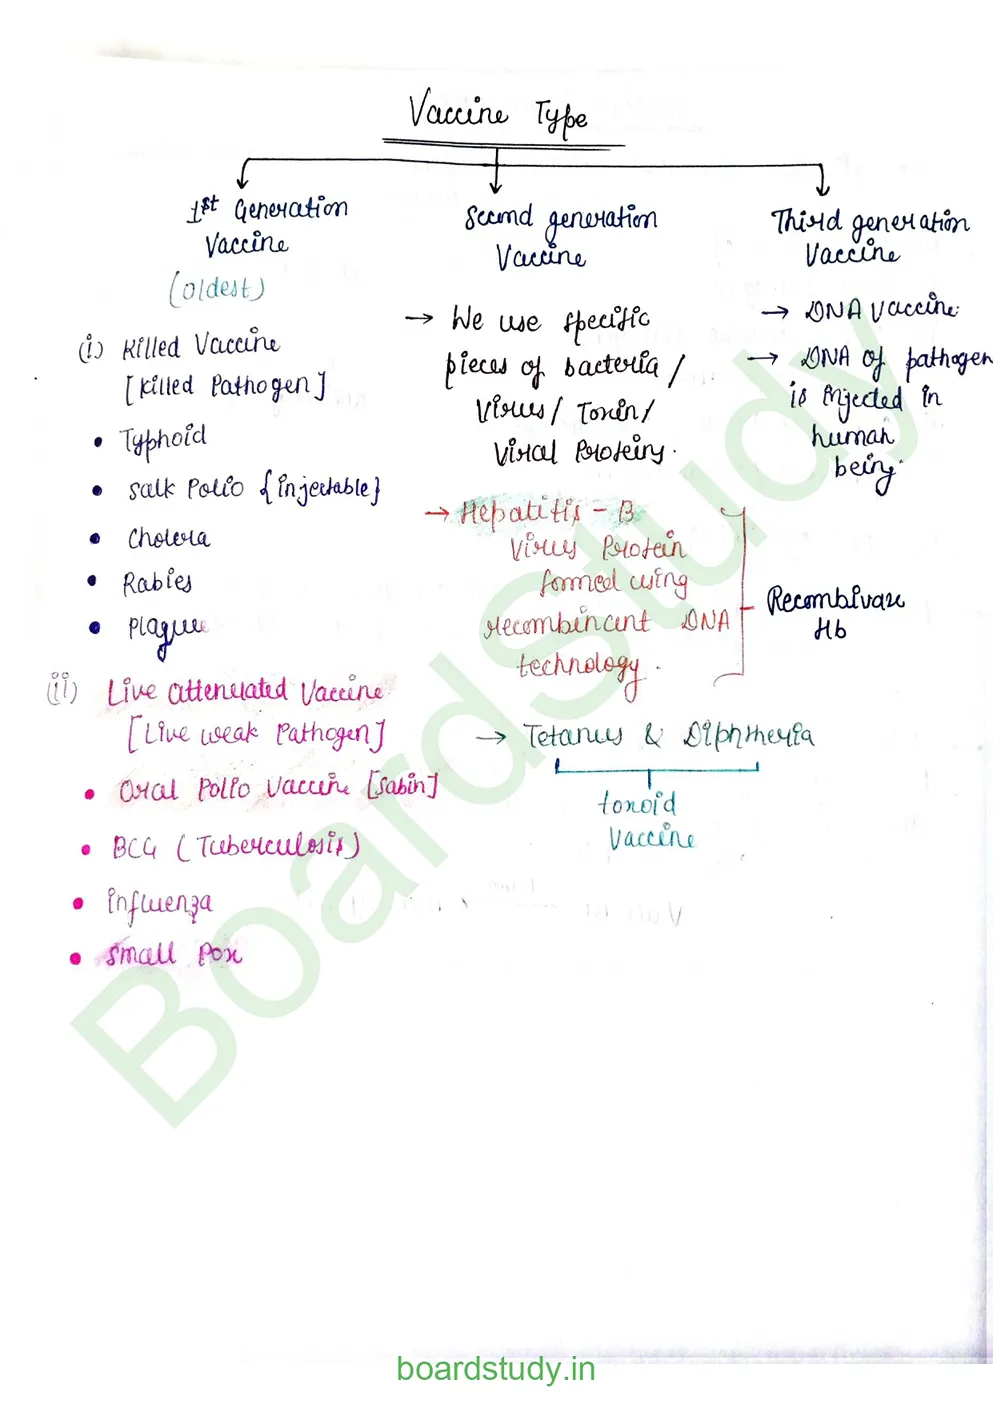 Vaccine Type
1st Generation
Vaccine
(oldest)
(i) Killed Vaccine
[Killed Pathogen]
• Typhoid
• Salk Polio {injectable}
• Cholera
• Rabies
• Plague
(ii) Live attenuated Vaccine
[Live weak Pathogen]
• Oral Polio Vaccine [Sabin]
• BCG (Tuberculosis)
• influenza
• Small Pox
Second generation
Vaccine
→ We use specific
pieces of bacteria /
Virus / Toxin /
Viral Proteins.
→ Hepatitis - B
Virus Protein
formed using
recombinant DNA
technology.
Recombivax
Hb
→ Tetanus & Diphtheria
toxoid
Vaccine
Third generation
Vaccine
→ DNA Vaccine.
→ DNA of pathogen
is injected in
human
being.
BoardStudy
boardstudy.in